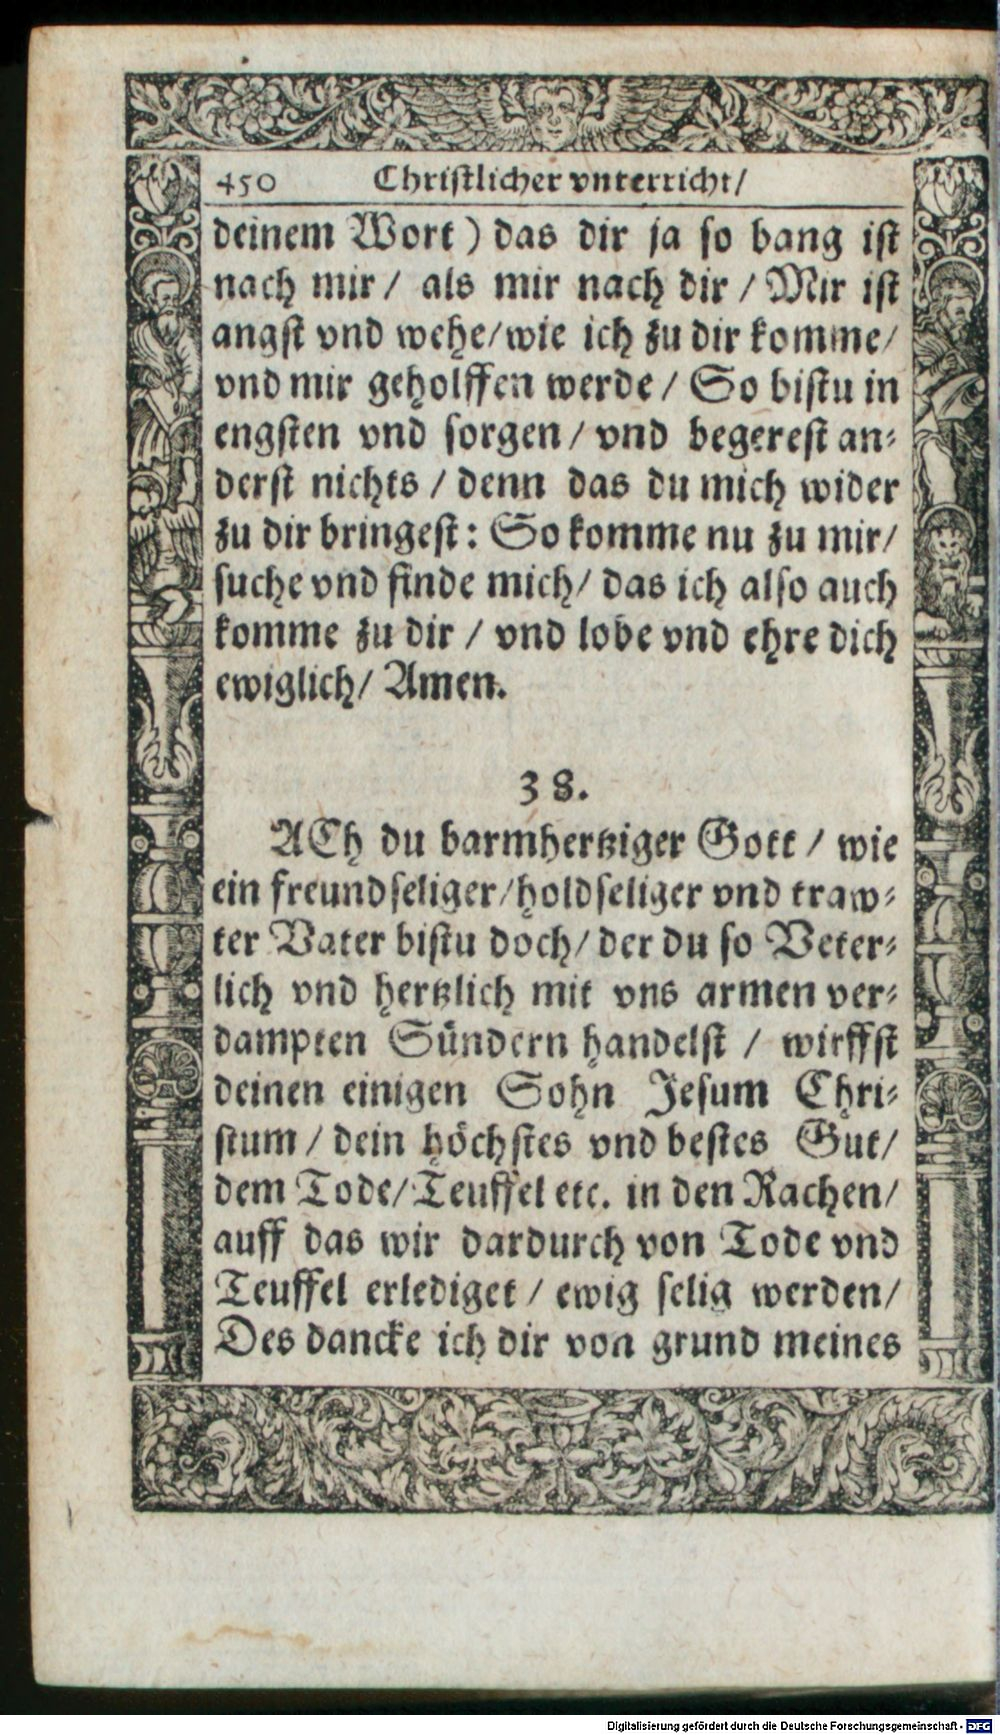 450 Christlicher vnterricht/
deinem Wort) das dir ja so bang ist
nach mir / als mir nach dir / Mir ist
angst vnd wehe/wie ich zu dir komme/
vnd mir geholffen werde / So bistu in
engsten vnd sorgen / vnd begerest an⸗
derst nichts / denn das du mich wider
zu dir bringest: So komme nu zu mir/
suche vnd finde mich/ das ich also auch
komme zu dir / vnd lobe vnd ehre dich
ewiglich/ Amen.
38.
ACh du barmhertziger Gott / wie
ein freundseliger/holdseliger vnd traw⸗
ter Vater bistu doch/ der du so Veter⸗
lich vnd hertzlich mit vns armen ver⸗
dampten Sündern handelst / wirffst
deinen einigen Sohn Jesum Chri⸗
stum / dein höchstes vnd bestes Gut/
dem Tode/Teuffel etc. in den Rachen/
auff das wir dardurch von Tode vnd
Teuffel erlediget / ewig selig werden/
Des dancke ich dir von grund meines
Digitalisierung gefördert durch die Deutsche Forschungsgemeinschaft - DFG